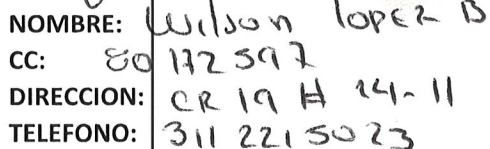 NOMBRE: Wilson Lopez B
CC: 80 172 597
DIRECCION: CR 19 H 14-11
TELEFONO: 311 221 5023